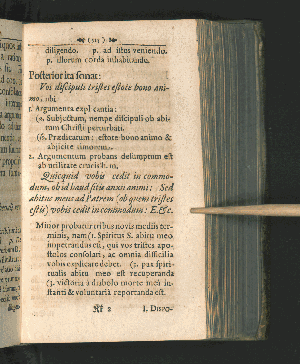 diligendo. p. ad istos veniendo.
p. illorum corda inhabitando.
Posterior ita sonat:
Vos discipuli tristes estote bono ani-
mo, ubi
1. Argumenta explicantia:
(α. Subjectum, nempe discipuli ob abi-
tum Christi perturbati.
(β. Prædicatum: estote bono animo &
abjicite timorem.
2. Argumentum probans desumptum est
ab utilitate
Quicquid vobis cedit in commo-
dum, ob id haud sitis anxii animi: Sed
abitus meus ad Patrem (ob quem tristes
estis) vobis cedit in commodum: E. &c.
Minor probatur tribus novis mediis ter-
minis, nam (1. Spiritus S. abitu meo
impetrandus est, qui vos tristes apo-
stolos consolari, ac omnia difficilia
vobis explicare debet. (2. pax spiri-
tualis abitu meo est recuperanda
(3. victoria à diabolo morte meâ in-
stanti & voluntariâ reportanda est.
2 I. DISPO-